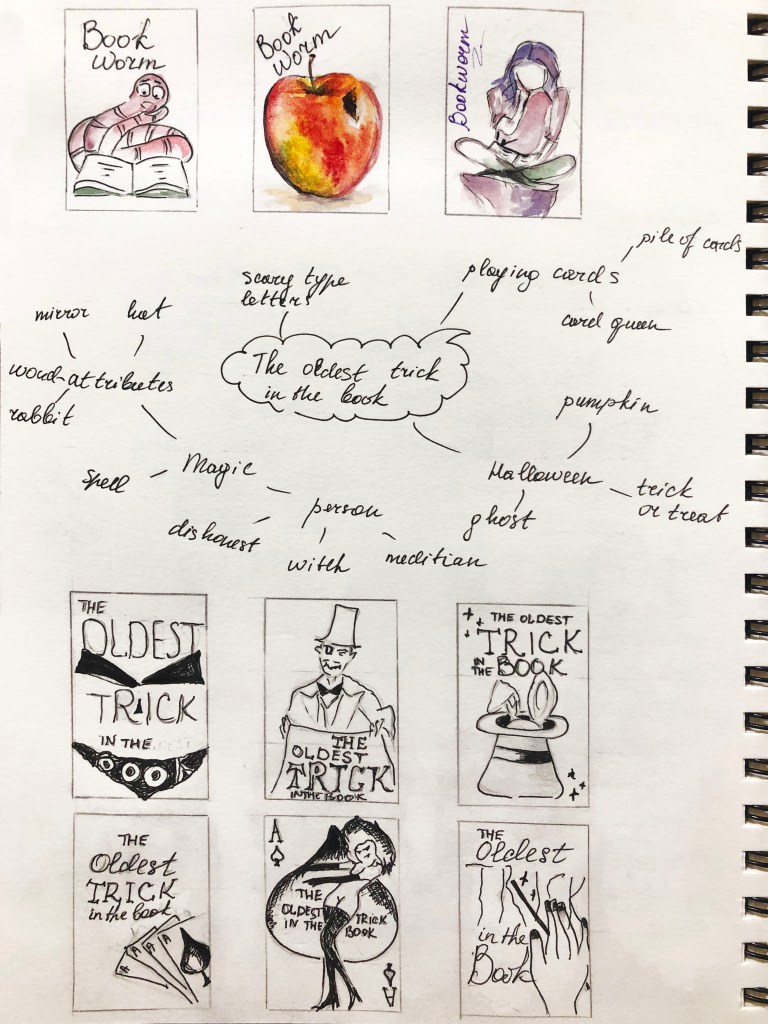 Book
Worm
Book
Worm
Bookworm
scary type
letters
playing cards
pile of cards
card queen
mirror
hat
word-attributes
rabbit
The oldest trick
in the book
pumpkin
Halloween
trick
or treat
ghost
Magic
Spell
person
dishonest
witch
meditian
THE
OLDEST
TRICK
IN THE
THE
OLDEST
TRICK
IN THE BOOK
THE OLDEST
TRICK
IN THE BOOK
THE
Oldest
TRICK
in the book
A
A
A
A
A
THE
OLDEST TRICK
IN THE BOOK
A
THE
Oldest
TRICK
in the
Book